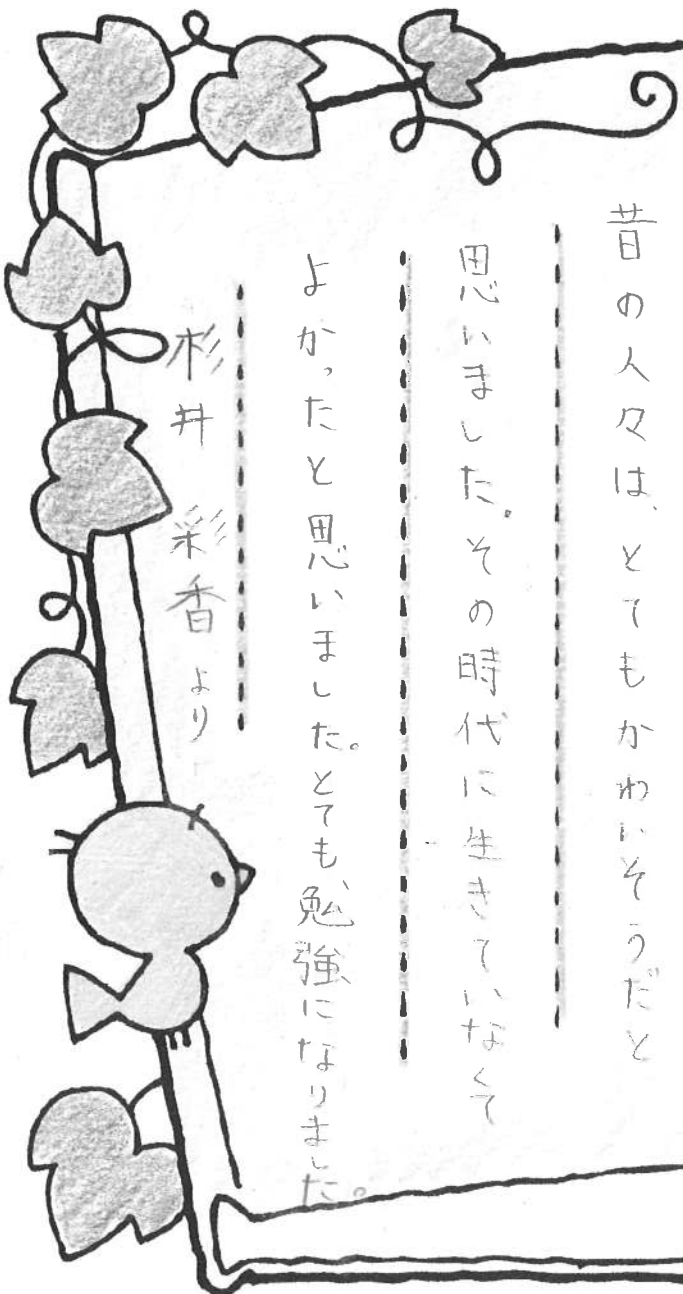 昔の人々は、とてもかわいそうだと
思いました。その時代に生きていなくて
よかったと思いました。とても勉強になりました。
杉井 彩香より